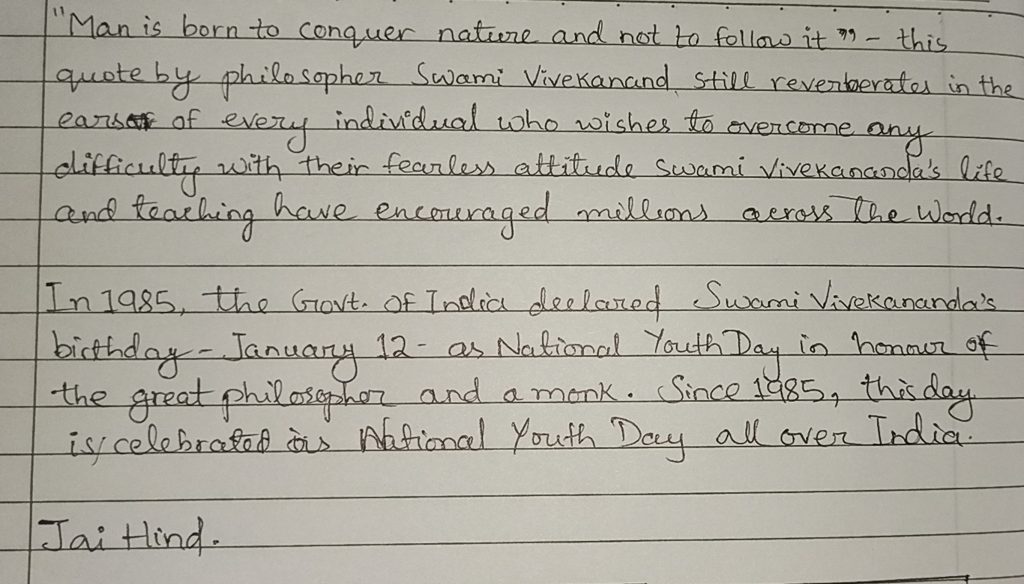 "Man is born to conquer nature and not to follow it" - this
quote by philosopher Swami Vivekanand still reverberates in the
ears of every individual who wishes to overcome any
difficulty with their fearless attitude Swami Vivekananda's life
and teaching have encouraged millions across the World.
In 1985, the Govt. of India declared Swami Vivekananda's
birthday - January 12 - as National Youth Day in honour of
the great philosopher and a monk. Since 1985, this day
is celebrated as National Youth Day all over India.
Jai Hind.